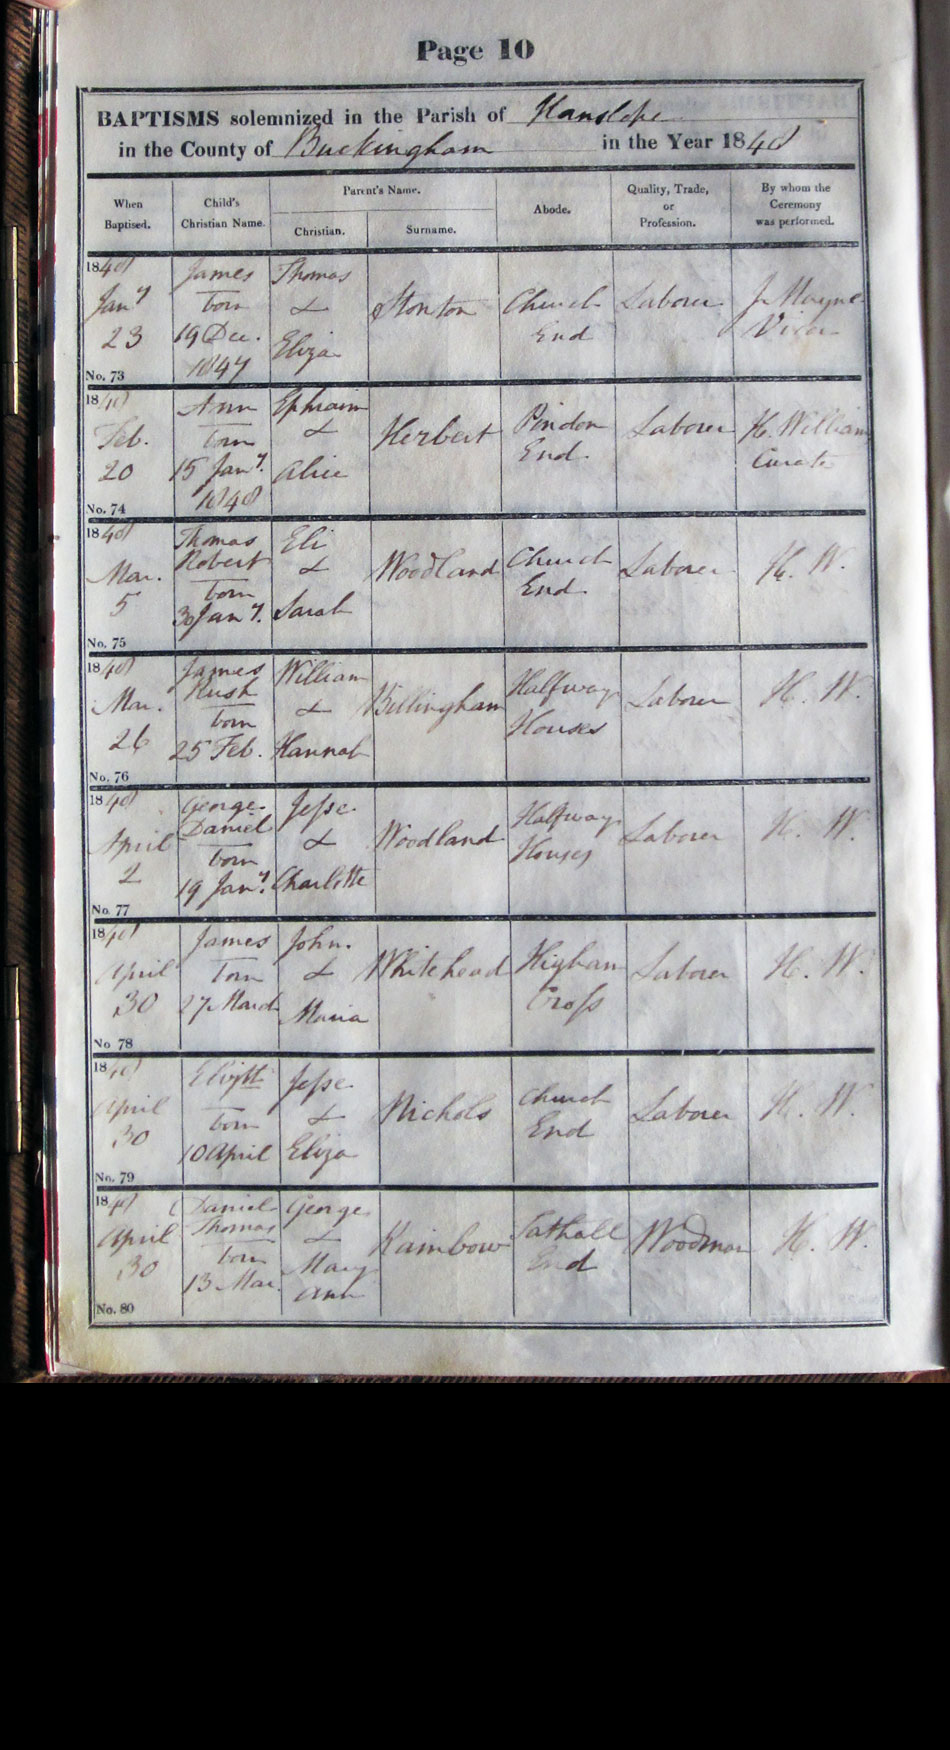 Page 10
BAPTISMS solemnized in the Parish of Hanslope
in the County of Buckingham in the Year 1848
When Baptised.
Child's Christian Name.
Parent's Name.
Christian.
Surname.
Abode.
Quality, Trade, or Profession.
By whom the Ceremony was performed.
1848
Jany
23
No. 73
James
born
19 Dec.
1847
Thomas
&
Eliza
Stonton
Church
End
Laborer
J. Mayne
Vicar
1848
Feb.
20
No. 74
Ann
born
15 Jany.
1848
Ephraim
&
Alice
Herbert
Pindon
End.
Laborer
H. William
Curate
1848
Mar.
5
No. 75
Thomas
Robert
born
30 Jany.
Eli
&
Sarah
Woodland
Church
End.
Laborer
H. W.
1848
Mar.
26
No. 76
James
Rush
born
25 Feb.
William
&
Hannah
Billingham
Halfway
Houses
Laborer
H. W.
1848
April
2
No. 77
George
Daniel
born
19 Jany.
Jesse
&
Charlotte
Woodland
Halfway
Houses
Laborer
H. W.
1848
April
30
No 78
James
born
27 March
John
&
Maria
Whitehead
Higham
Cross
Laborer
H. W.
1848
April
30
No. 79
born
10 April
Jesse
&
Eliza
Nichols
Church
End
Laborer
H. W.
1848
April
30
No. 80
Daniel
Thomas
born
13 Mar.
George
&
Mary
Ann
Rainbow
Tathall
End
Woodman
H. W.